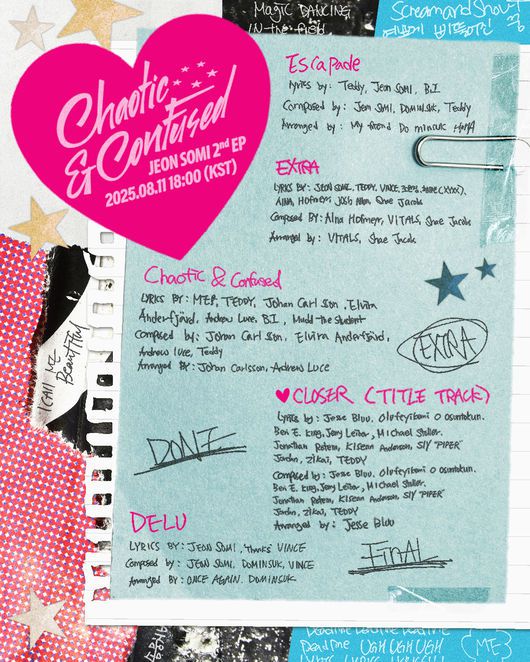 MAGIC DANCING
IN-the field
Screamandshout
Chaotic
& Confused
JEON SOMI 2nd EP
2025.08.11 18:00 (KST)
Escapade
Lyrics by: Teddy, Jeon SOMI, B.I
Composed by: Jeon SOMI, DOMINSUK, Teddy
Arranged by: My friend Do minsuk HAHA
EXTRA
LYRICS BY: JEON SOMI, TEDDY, VINCE,
AINA, Hofmeyr, Josh Alan, Shae Jacobs
Composed BY: Aina Hofmeyr, VITALS, Shae Jacobs
Arranged by: VITALS, Shae Jacobs
Chaotic & Confused
LYRICS BY: MEP, TEDDY, Johan Carlsson, Elvira
Anderfjärd, Andrew Luce, B.I, Mudd the student
Composed by: Johan Carlsson, Elvira Anderfjärd,
Andrew luce, Teddy
Arranged BY: Johan Carlsson, Andrew Luce
EXTRA
I CALL ME
BEAUTIFUL
♥CLOSER (TITLE TRACK)
Lyrics by: Jesse Bluu, Olufeyikemi O Osuntokun.
Ben E. King, Jerry Leiber, Michael Stoller.
Jonathan Rotem, Kisean Anderson, Sly "PIPER"
Jordan, Zikai, TEDDY
Composed by: Jesse Bluu, Olufeyikemi O Osuntokun.
Ben E. King, Jerry Leiber, Michael Stoller.
Jonathan Rotem, Kisean Anderson, Sly "PIPER"
Jordan, Zikai, TEDDY
Arranged by: Jesse Bluu
DONE
DELU
LYRICS BY: JEON SOMI, "thanks" VINCE
Composed by: JEON SOMI, DOMINSUK, VINCE
Arranged BY: ONCE AGAIN. DOMINSUK
FINAL
Deadline UGH UGH UGH
(ME)